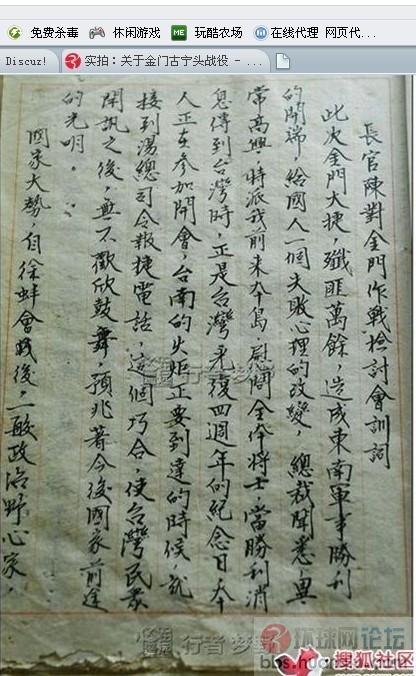 免费杀毒 休闲游戏 ME 玩酷农场 在线代理 网页代...
Discuz! 实拍：关于金门古宁头战役 - ...
長官陳對金門作戰檢討會訓詞
此次金門大捷，殲匪萬餘，造成東南軍事勝利
的開端，給國人一個失敗心理的改變，總裁聞悉，異
常高興，特派我前來本島，慰問全体將士，當勝利消
息傳到台灣時，正是台灣光復四週年的紀念日，本
人正在參加開會，台南的火炬正要到達的時候，就
接到湯總司令報捷電話，這個巧合，使台灣民衆
聞訊之後，無不歡欣鼓舞，預兆著今後國家前途
的光明。
國家大勢，自徐蚌會戰後，一般政治野心家，
行者 梦
行者 梦
环球网论坛
bbs.huanqiu.com
搜狐社区